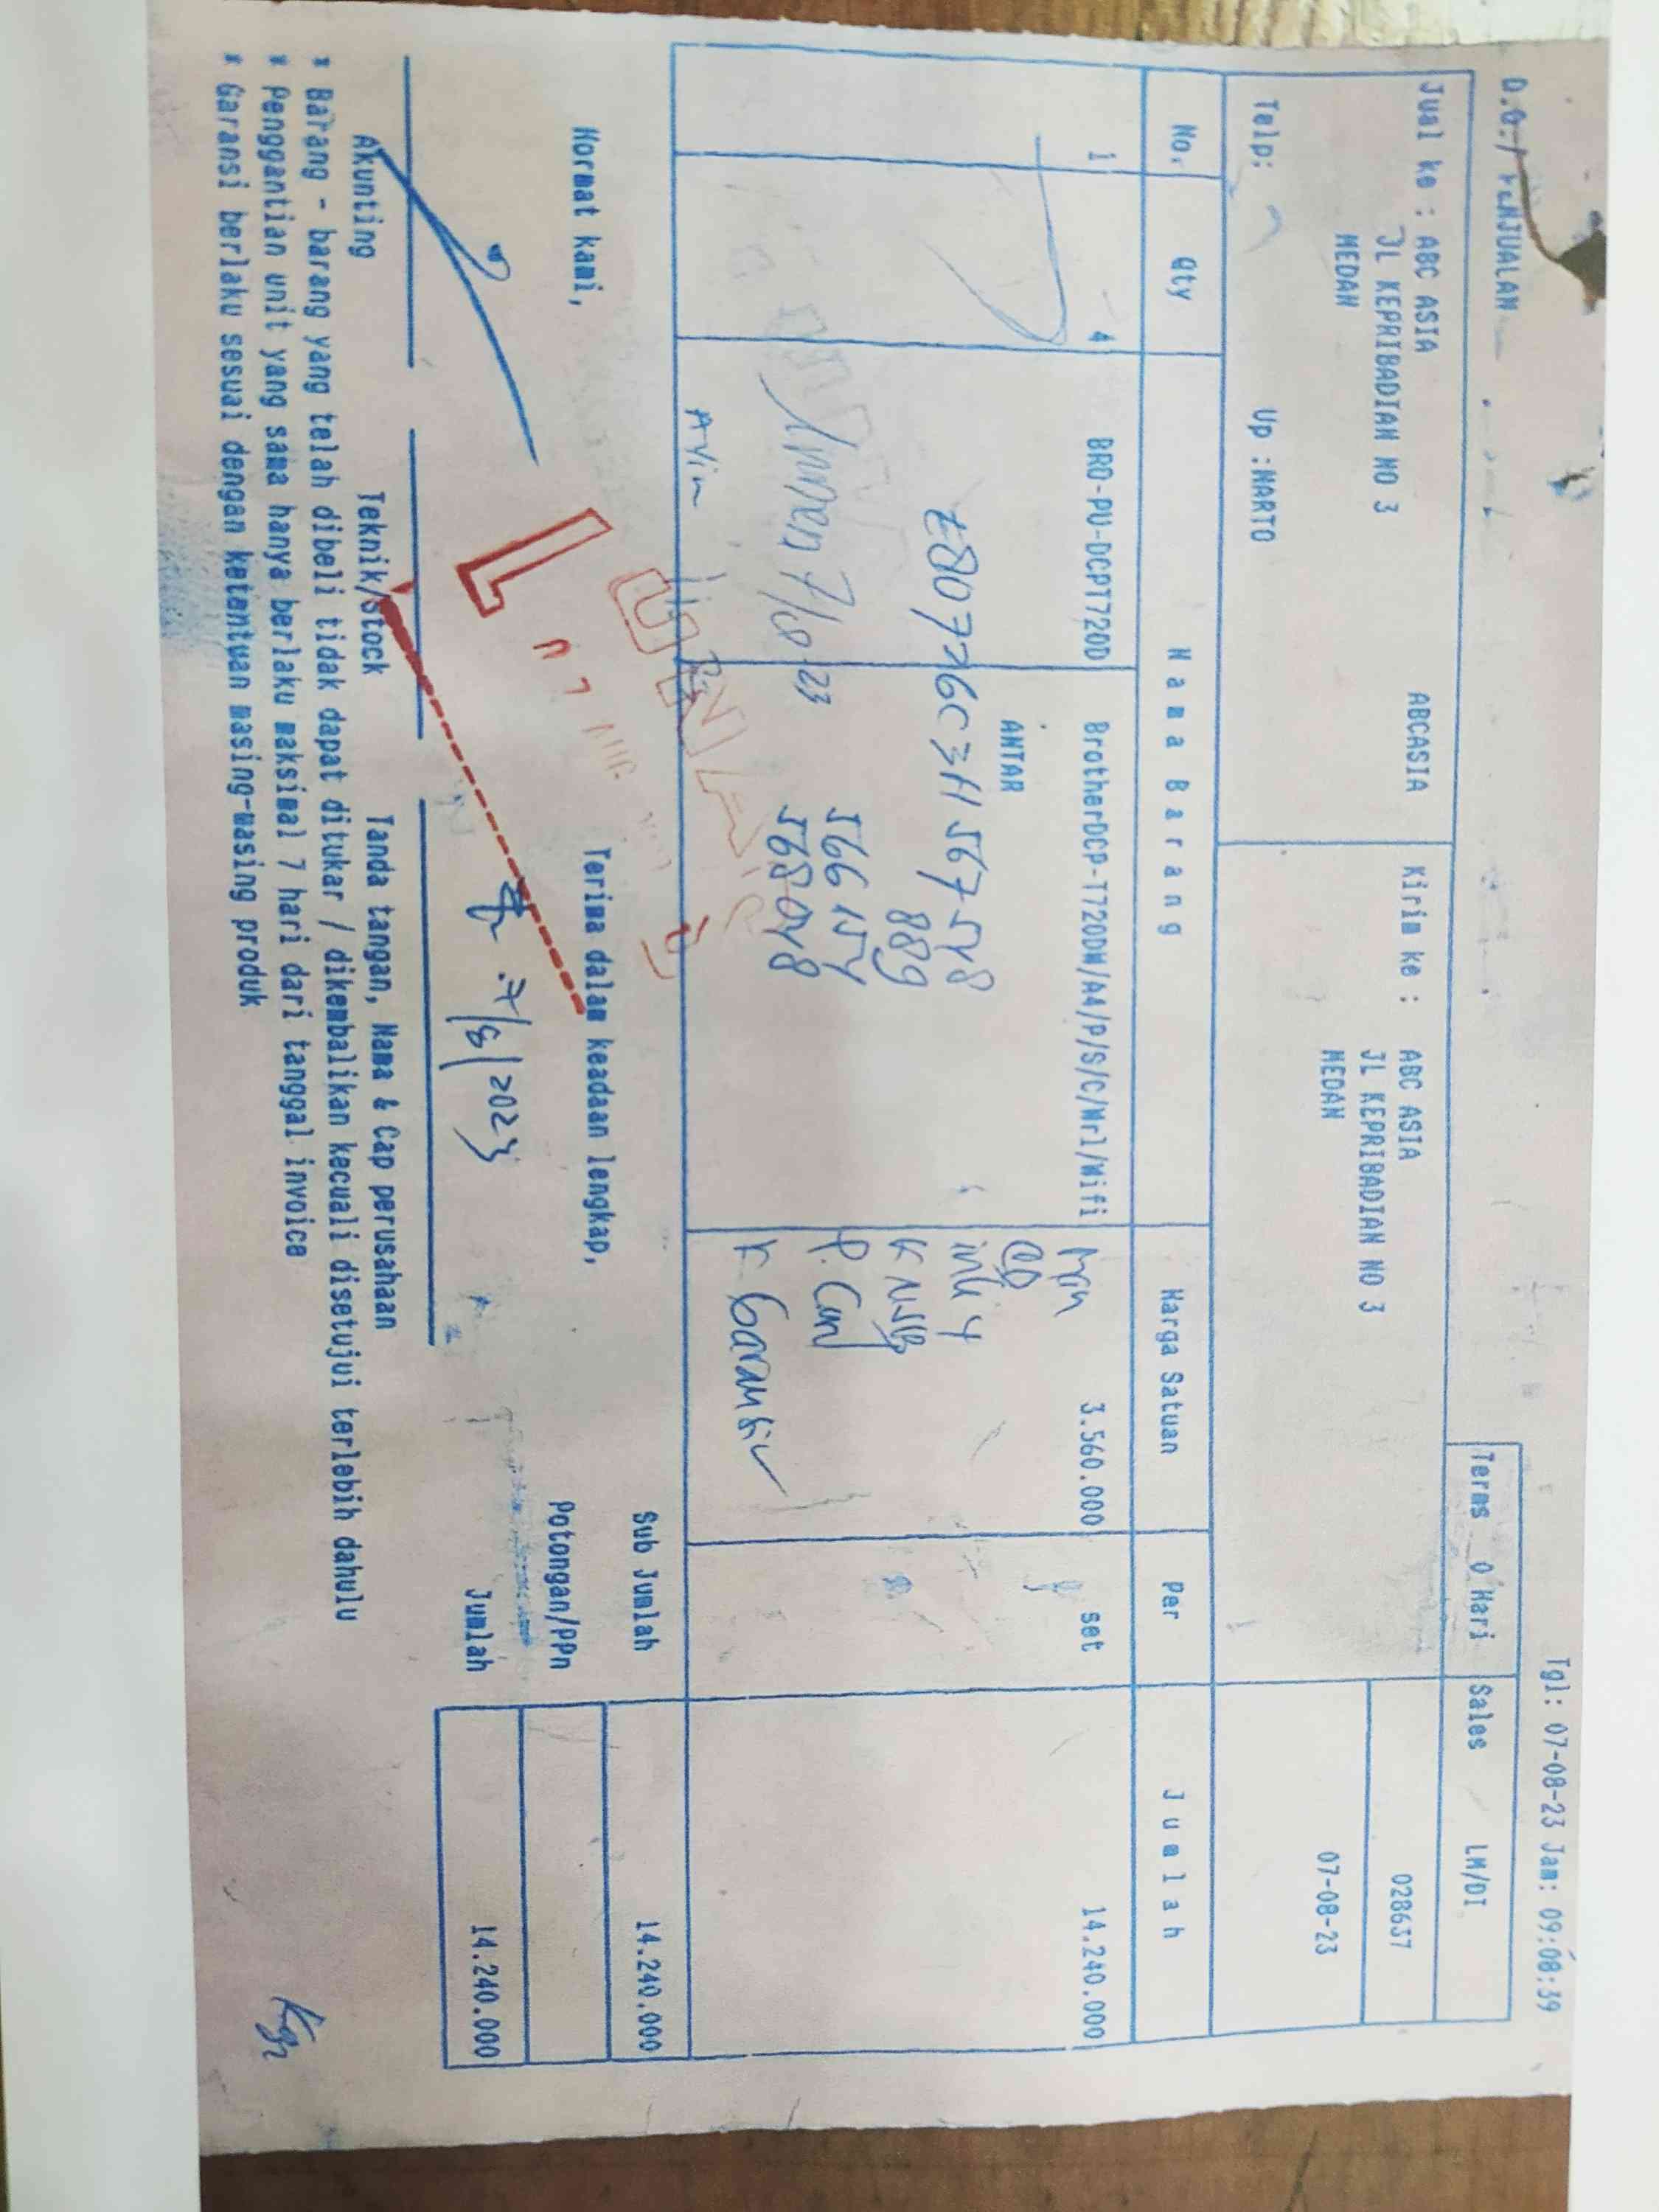 Tgl: 07-08-23 Jam: 09:08:39
D.O./ PENJUALAN
Terms 0 Hari Sales LM/DI
Jual ke : ABC ASIA ABCASIA Kirim ke : ABC ASIA 028637
JL KEPRIBADIAN NO 3 JL KEPRIBADIAN NO 3
MEDAN MEDAN 07-08-23
Telp: Up :NARTO
No. Qty Nama Barang Harga Satuan Per Jumlah
1 4 BRO-PU-DCPT720D BrotherDCP-T720DW/A4/P/S/C/Wrl/Wifi 3.560.000 set 14.240.000
ANTAR
E80726C3H567548
889
566154
568048
7/8-23
Avin
CD
P. Card
K Garansi
LUNAS
Sub Jumlah 14.240.000
Hormat kami, Terima dalam keadaan lengkap,
Potongan/PPn
7/8/2023
Jumlah 14.240.000
Akunting Teknik/Stock Tanda tangan, Nama & Cap perusahaan
* Barang - barang yang telah dibeli tidak dapat ditukar / dikembalikan kecuali disetujui terlebih dahulu
* Penggantian unit yang sama hanya berlaku maksimal 7 hari dari tanggal invoice
* Garansi berlaku sesuai dengan ketentuan masing-masing produk